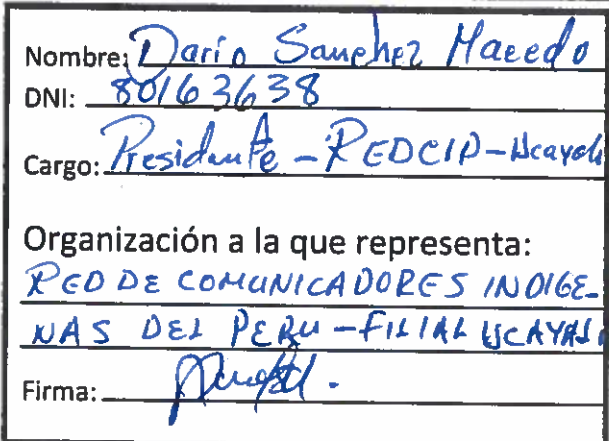 Nombre: Dario Sanchez Macedo
DNI: 80163638
Cargo: Presidente - REDCIP - Ucayali
Organización a la que representa:
RED DE COMUNICADORES INDIGE-
NAS DEL PERU - FILIAL UCAYALI
Firma: